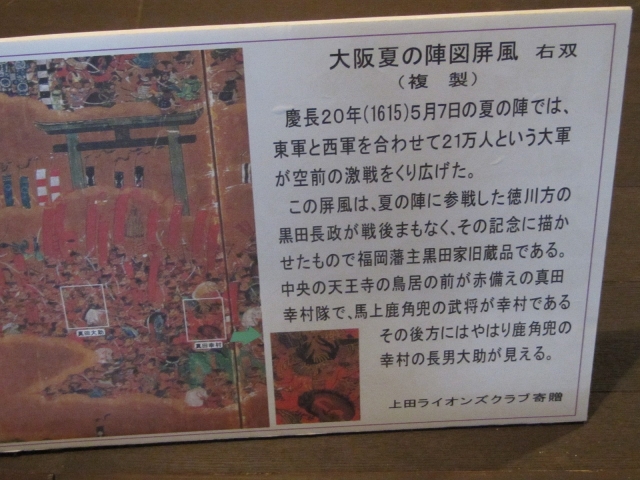 大阪夏の陣図屏風 右双
(複製)
慶長20年(1615)5月7日の夏の陣では、
東軍と西軍を合わせて21万人という大軍
が空前の激戦をくり広げた。
この屏風は、夏の陣に参戦した徳川方の
黒田長政が戦後まもなく、その記念に描か
せたもので福岡藩主黒田家旧蔵品である。
中央の天王寺の鳥居の前が赤備えの真田
幸村隊で、馬上鹿角兜の武将が幸村である
その後方にはやはり鹿角兜の
幸村の長男大助が見える。
上田ライオンズクラブ寄贈
真田大助
真田幸村